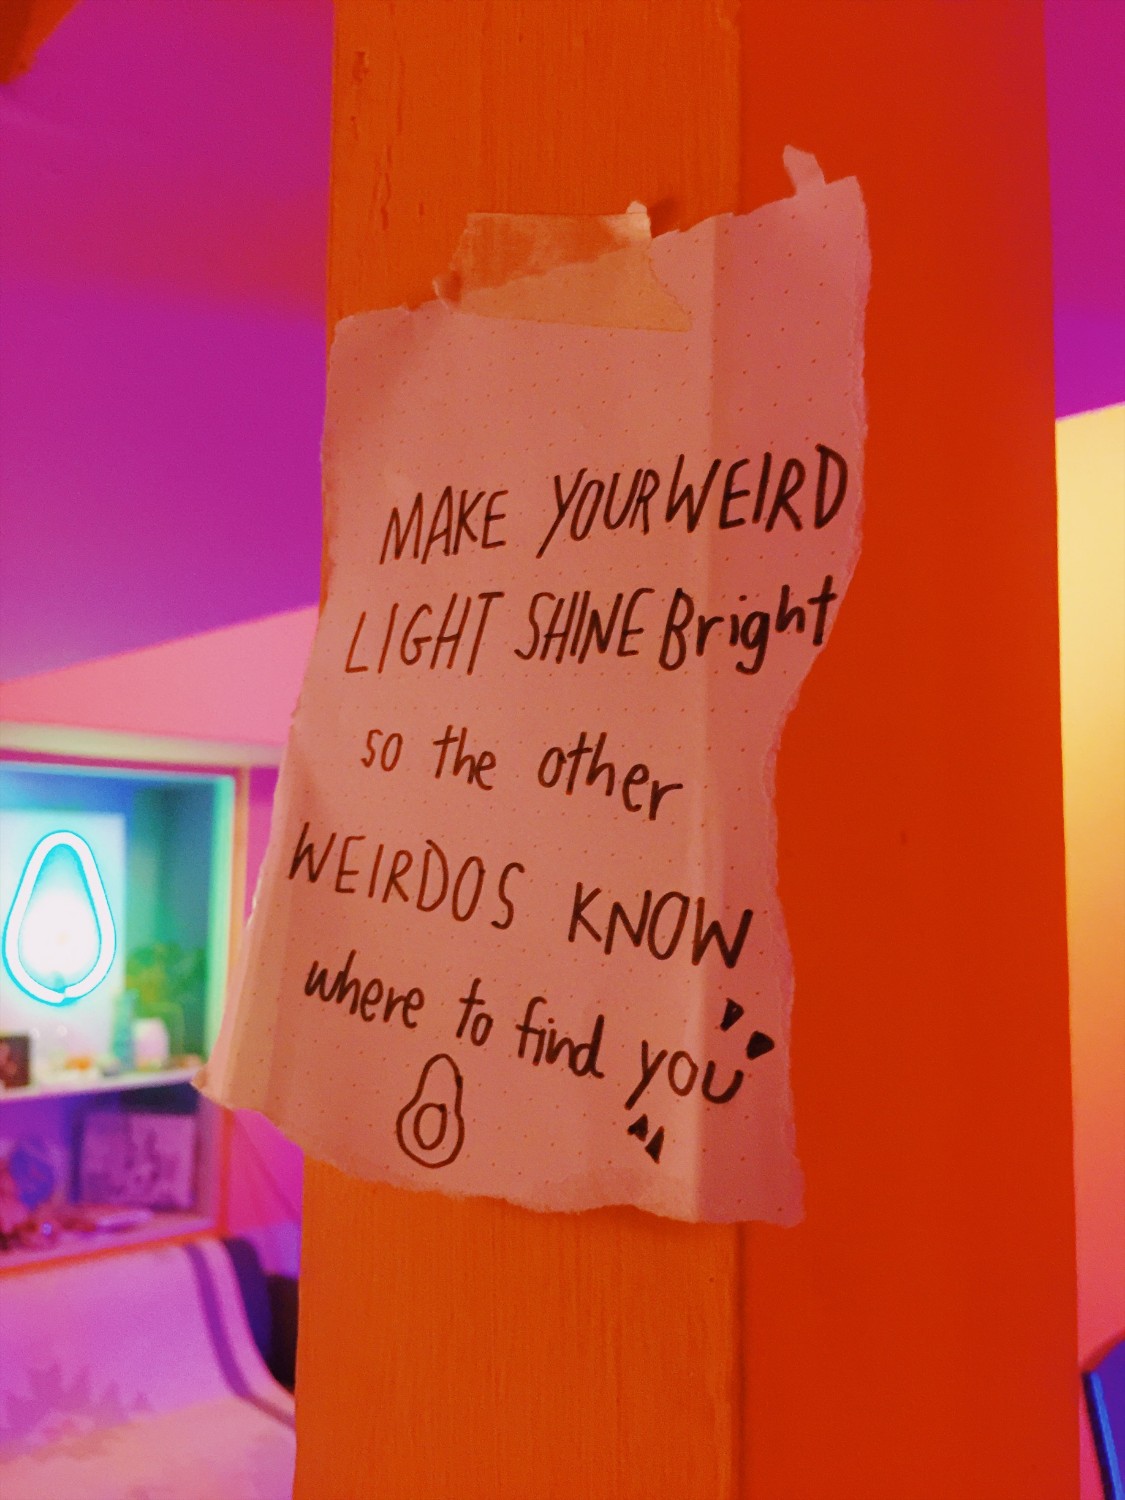 MAKE YOUR WEIRD
LIGHT SHINE Bright
so the other
WEIRDOS KNOW
where to find you